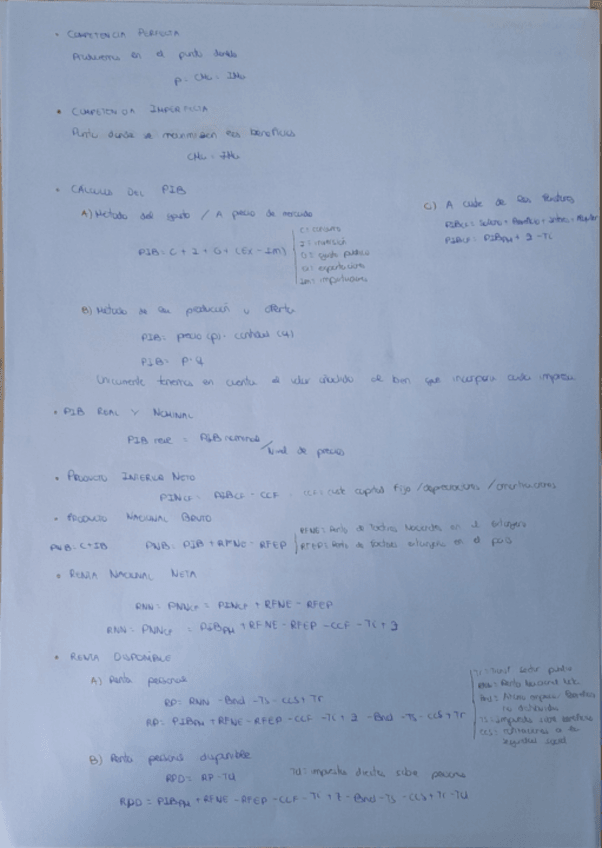 • COMPETENCIA PERFECTA
Produciremos en el punto donde
P = CMa = IMa
• COMPETENCIA IMPERFECTA
Punto donde se maximizan los beneficios
CMa = IMa
• CÁLCULO DEL PIB
A) Método del gasto / A precio de mercado
PIB = C + I + G + (Ex - Im)
C = consumo
I = inversión
G = gasto público
Ex = exportaciones
Im = importaciones
C) A coste de los factores
PIBcf = Salario + Beneficio + Interés + Alquiler
PIBcf = PIBpm + - Ti
B) Método de la producción u oferta
PIB = precio (p) · cantidad (q)
PIB = P · Q
Únicamente tenemos en cuenta el valor añadido al bien que incorpora cada empresa
• PIB REAL Y NOMINAL
PIB real = PIB nominal / Nivel de precios
• PRODUCTO INTERIOR NETO
PINcf = PIBcf - CCF CCF: capital fijo / depreciaciones / amortizaciones
• PRODUCTO NACIONAL BRUTO
PNB: C + IB PNB: PIB + RFNE - RFEP
RFNE: Renta de factores nacionales en el extranjero
RFEP: Renta de factores extranjeros en el país
• RENTA NACIONAL NETA
RNN = PNNcf = PINcf + RFNE - RFEP
RNN = PNNcf = PIBpm + RFNE - RFEP - CCF - Ti +
• RENTA DISPONIBLE
A) Renta personal
RP: RNN - Bnd - Ts - CCS + Tr
RP: PIBpm + RFNE - RFEP - CCF - Ti + - Bnd - Ts - CCS + Tr
Tr: sector público
RNN: Renta Nacional Neta
Bnd: Beneficios
no distribuidos
Ts: impuesto sobre beneficios
CCS: a la
seguridad social
B) Renta personal disponible
RPD: RP - Td Td: impuestos directos sobre personas
RPD = PIBpm + RFNE - RFEP - CCF - Ti + - Bnd - Ts - CCS + Tr - Td